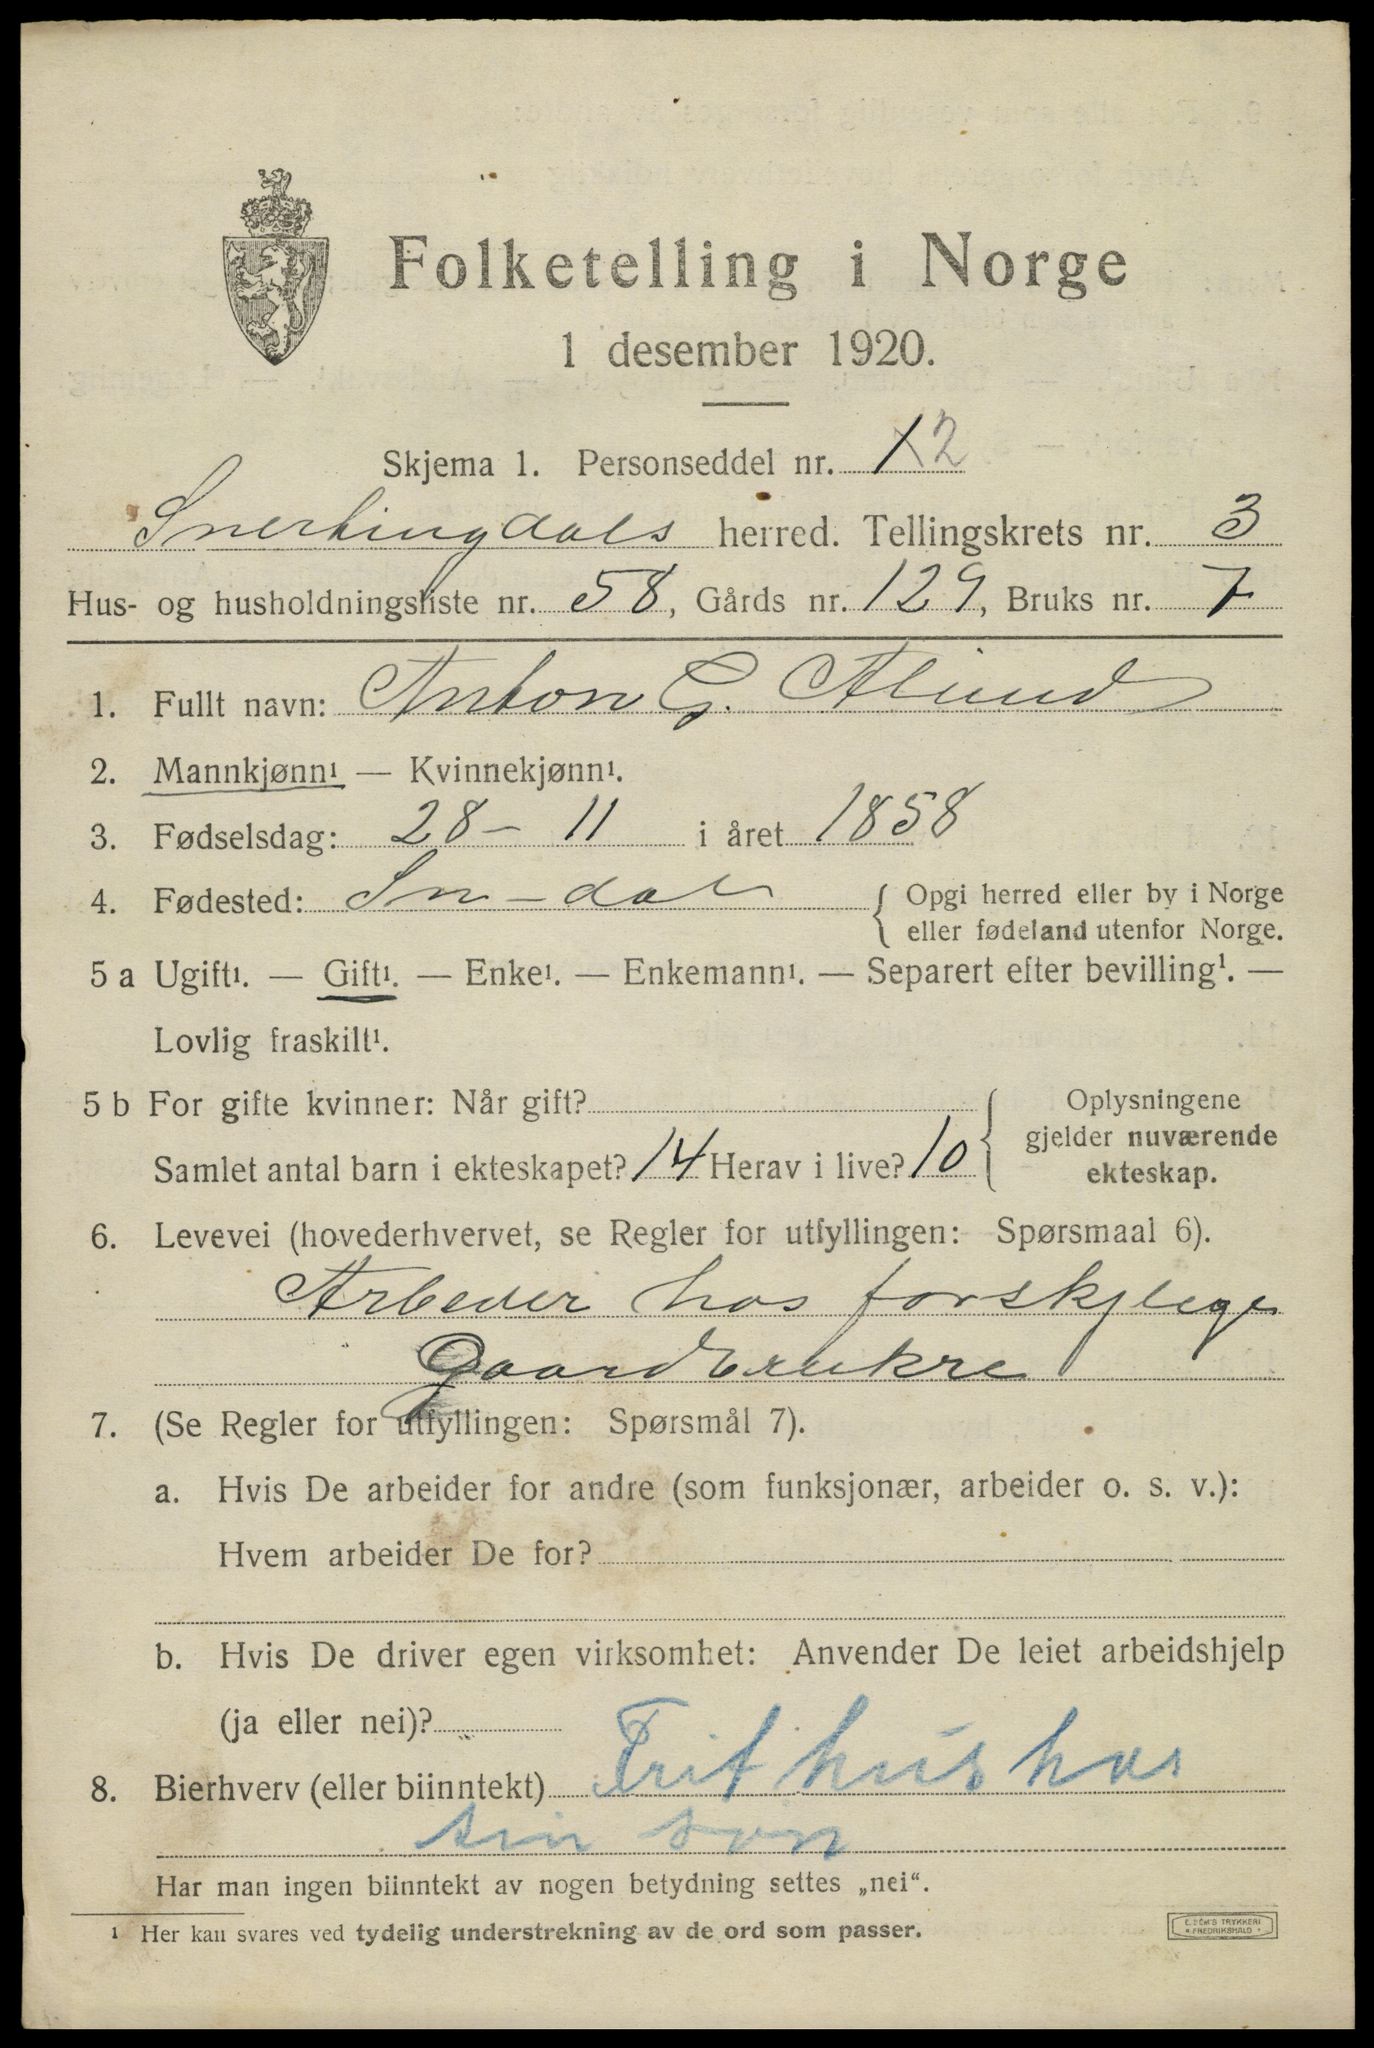 Folketelling i Norge
1 desember 1920.
Skjema 1. Personseddel nr. 12
Snertingdals herred. Tellingskrets nr. 3
Hus- og husholdningsliste nr. 58, Gårds nr. 129, Bruks nr. 7
1. Fullt navn: Anton G. Alund
2. Mannkjønn¹ — Kvinnekjønn¹.
3. Fødselsdag: 28 - 11 i året 1858
4. Fødested: Sn-dal { Opgi herred eller by i Norge
eller fødeland utenfor Norge.
5 a Ugift¹. — Gift¹. — Enke¹. — Enkemann¹. — Separert efter bevilling¹. —
Lovlig fraskilt¹.
5 b For gifte kvinner: Når gift?
Samlet antal barn i ekteskapet? 14 Herav i live? 10
{ Oplysningene
gjelder nuværende
ekteskap.
6. Levevei (hovederhvervet, se Regler for utfyllingen: Spørsmaal 6).
Arbeder hos forskjelige
Gaardbrukre
7. (Se Regler for utfyllingen: Spørsmål 7).
a. Hvis De arbeider for andre (som funksjonær, arbeider o. s. v.):
Hvem arbeider De for?
b. Hvis De driver egen virksomhet: Anvender De leiet arbeidshjelp
(ja eller nei)?
8. Bierhverv (eller biinntekt) Frit hus hos
sin søn
Har man ingen biinntekt av nogen betydning settes „nei“.
¹ Her kan svares ved tydelig understrekning av de ord som passer.
E. SEM'S TRYKKERI
• FREDRIKSHALD •